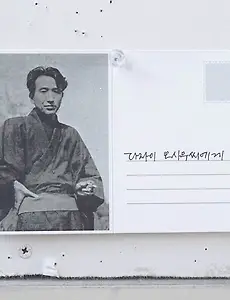 다자이 오사무씨에게